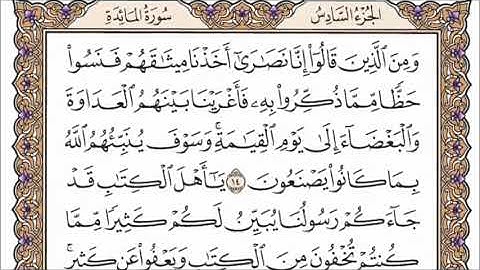 الجزء السادس سورة المائدة
وَمِنَ ٱلَّذِينَ قَالُوٓا۟ إِنَّا نَصَٰرَىٰٓ أَخَذْنَا مِيثَٰقَهُمْ فَنَسُوا۟
حَظًّا مِّمَّا ذُكِّرُوا۟ بِهِۦ فَأَغْرَيْنَا بَيْنَهُمُ ٱلْعَدَاوَةَ
وَٱلْبَغْضَآءَ إِلَىٰ يَوْمِ ٱلْقِيَٰمَةِ ۚ وَسَوْفَ يُنَبِّئُهُمُ ٱللَّهُ
بِمَا كَانُوا۟ يَصْنَعُونَ ١٤ يَٰٓأَهْلَ ٱلْكِتَٰبِ قَدْ
جَآءَكُمْ رَسُولُنَا يُبَيِّنُ لَكُمْ كَثِيرًا مِّمَّا
كُنتُمْ تُخْفُونَ مِنَ ٱلْكِتَٰبِ وَيَعْفُوا۟ عَن كَثِيرٍ ۚ